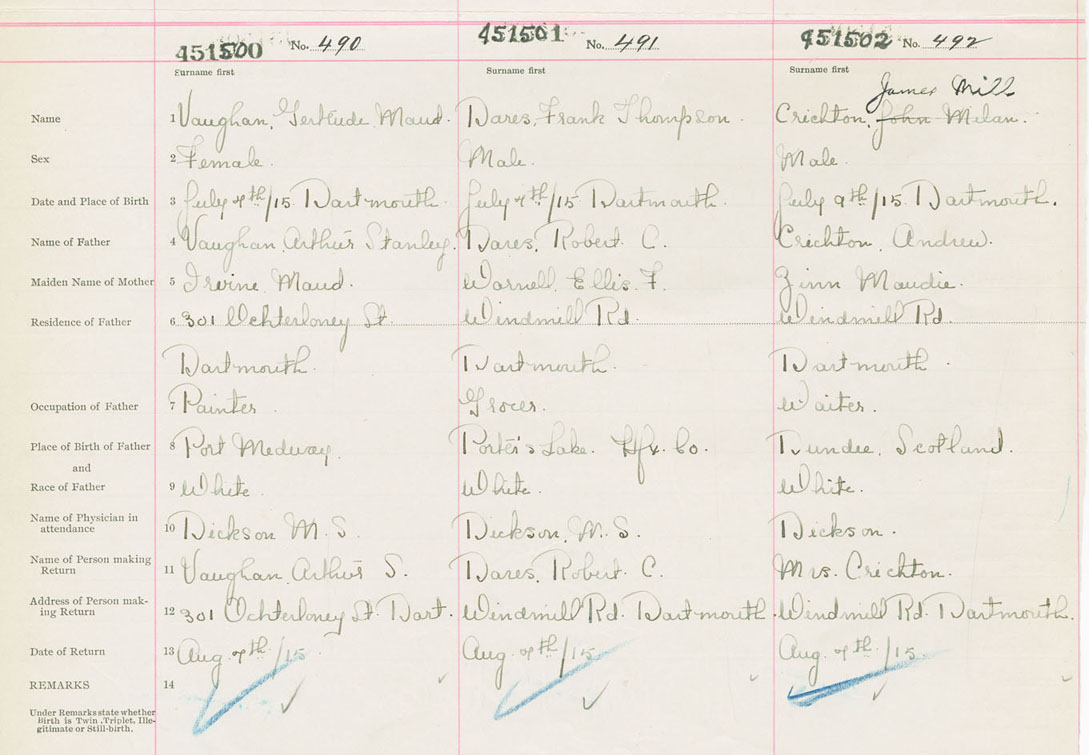 451500 No. 490 451501 No. 491 451502 No. 492
Surname first Surname first Surname first
James Mill
Name 1 Vaughan, Gertrude Maud. Dares, Frank Thompson. Crichton, John Milan.
Sex 2 Female. Male. Male.
Date and Place of Birth 3 July 7th/15 Dartmouth. July 7th/15 Dartmouth. July 9th/15 Dartmouth.
Name of Father 4 Vaughan, Arthur Stanley. Dares, Robert C. Crichton, Andrew.
Maiden Name of Mother 5 Irvine, Maud. Warnell, Ellis F. Zinn Maudie.
Residence of Father 6 301 Ochterloney St. Windmill Rd. Windmill Rd.
Dartmouth. Dartmouth. Dartmouth.
Occupation of Father 7 Painter. Grocer. Waiter.
Place of Birth of Father 8 Port Medway. Porter's Lake. Hfx. Co. Dundee, Scotland.
and
Race of Father 9 White. White. White.
Name of Physician in
attendance 10 Dickson M. S. Dickson, M. S. Dickson.
Name of Person making
Return 11 Vaughan, Arthur S. Dares, Robert C. Mrs. Crichton.
Address of Person mak-
ing Return 12 301 Ochterloney St. Dart. Windmill Rd. Dartmouth. Windmill Rd. Dartmouth.
Date of Return 13 Aug. 7th/15 Aug. 7th/15 Aug. 7th/15
REMARKS 14
Under Remarks state whether
Birth is Twin, Triplet, Ille-
gitimate or Still-birth.